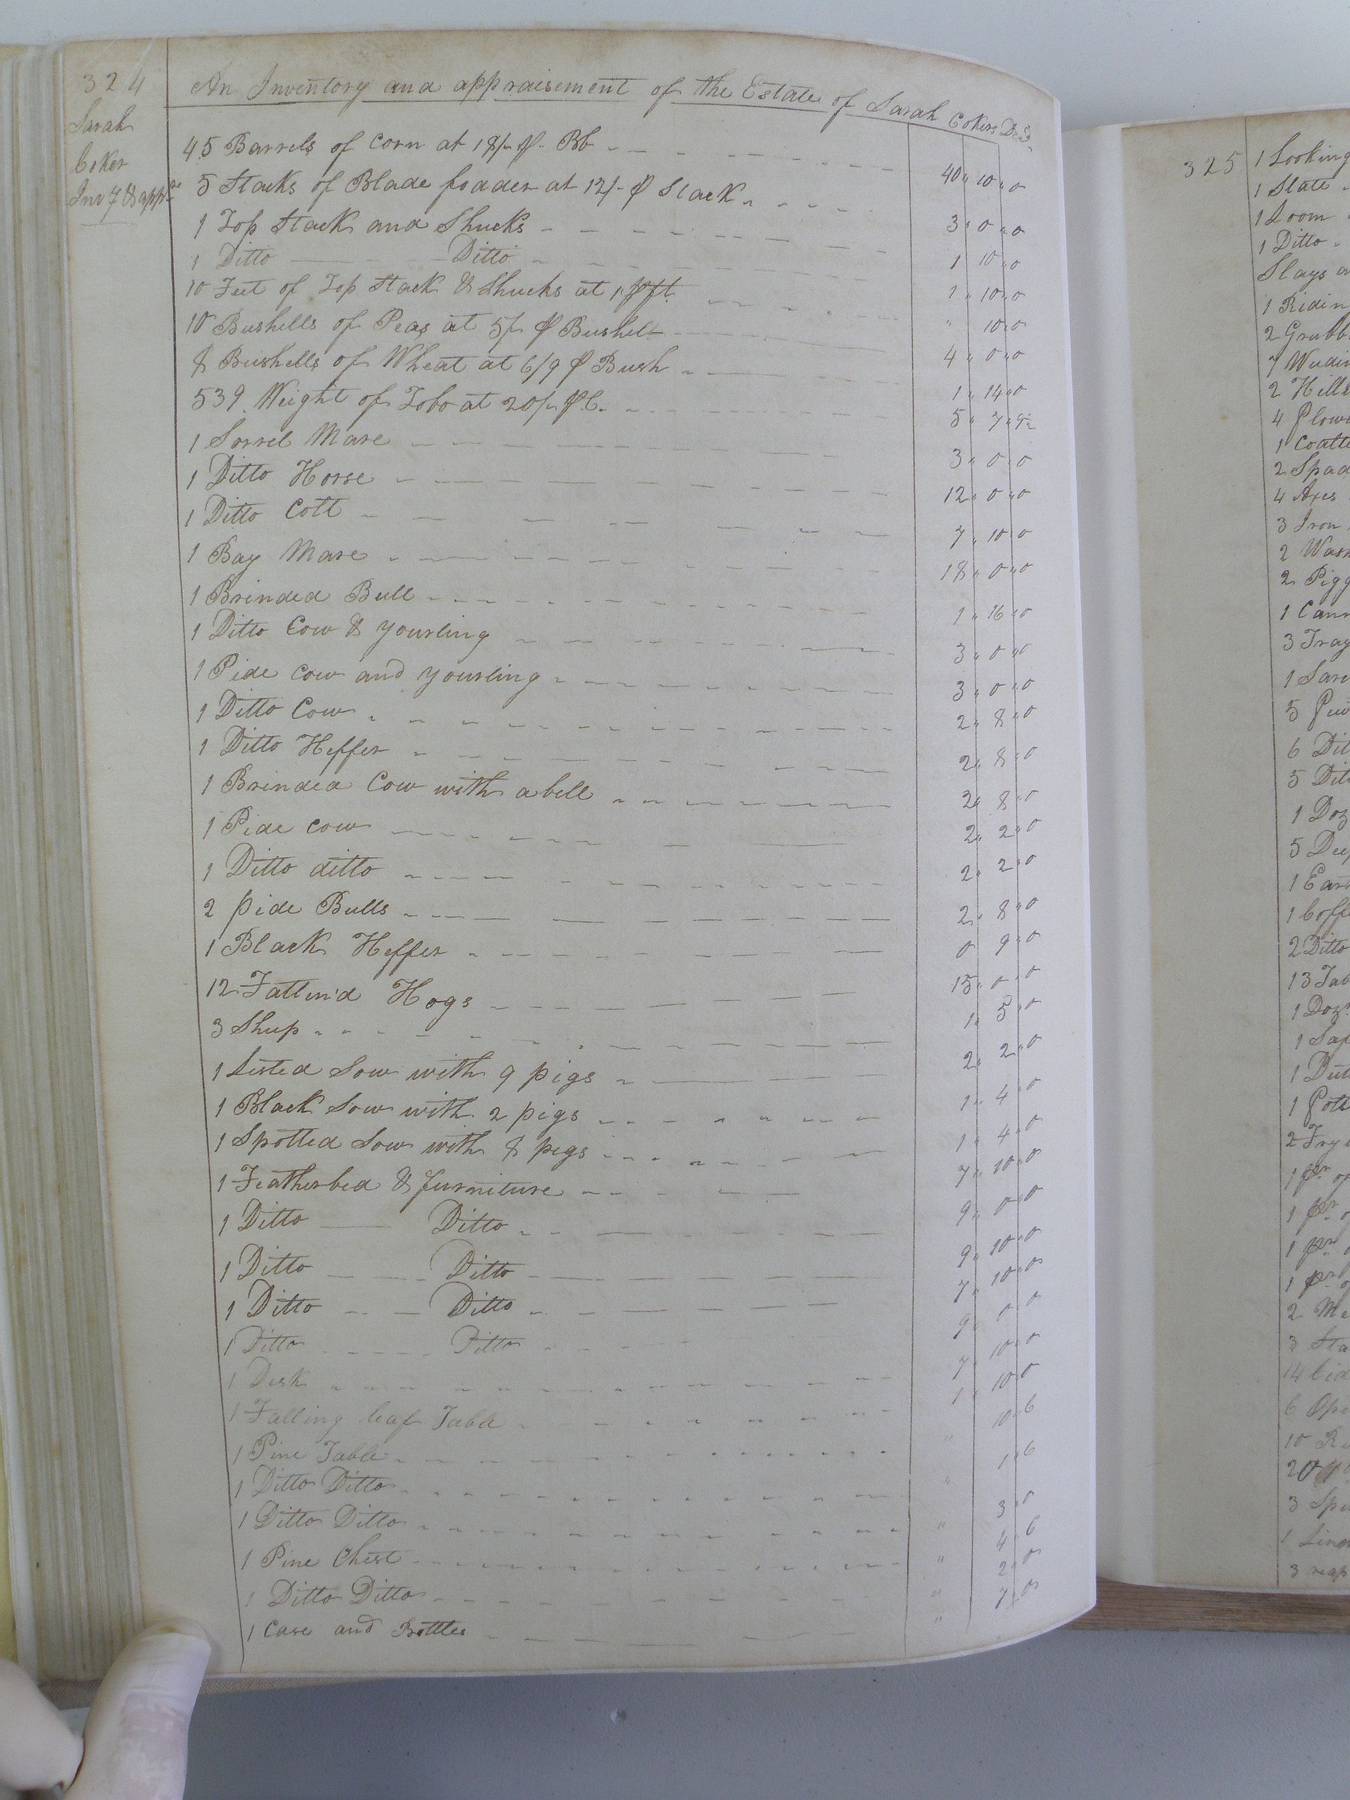 324
Sarah
Coker
An Inventory and appraisement of the Estate of Sarah Coker
45 Barrels of Corn at 18/- ₱ Bb 40 " 10 " 0
5 Stacks of Blade fodder at 12/- ₱ Stack 3 " 0 " 0
1 Top Stack and Shucks 1 10 " 0
1 Ditto Ditto 1 " 10 " 0
10 Feet of Top Stack & Shucks at 1/ ₱ ft " 10 " 0
10 Bushells of Peas at 5/ ₱ Bushell 4 " 0 " 0
8 Bushells of Wheat at 6/9 ₱ Bush 1 " 14 " 0
539 Weight of Tobo at 20/- ₱ C. 5 " 7 " 9½
1 Sorrel Mare 3 " 0 " 0
1 Ditto Horse 12 " 0 " 0
1 Ditto Colt 7 " 10 " 0
1 Bay Mare 18 " 0 " 0
1 Brinded Bull 1 " 16 " 0
1 Ditto Cow & yourling 3 " 0 " 0
1 Pide Cow and yourling 3 " 0 " 0
1 Ditto Cow 2 " 8 " 0
1 Ditto Heffer 2 " 8 " 0
1 Brinded Cow with a bell 2 " 8 " 0
1 Pide Cow 2 " 2 " 0
1 Ditto ditto 2 " 2 " 0
2 pide Bulls 2 " 8 " 0
1 Black Heffer 0 9 " 0
12 Fatten'd Hogs 15 " 0 " 0
3 Shup 1 " 5 " 0
1 Listed Sow with 9 pigs 2 " 2 " 0
1 Black Sow with 2 pigs 1 " 4 " 0
1 Spotted Sow with 8 pigs 1 " 4 " 0
1 Featherbed & furniture 7 " 10 " 0
1 Ditto Ditto 9 " 0 " 0
1 Ditto Ditto 9 " 10 " 0
1 Ditto Ditto 7 " 10 " 0
1 Ditto Ditto 9 " 0 " 0
1 Desk 7 " 10 " 0
1 Falling leaf Table 1 " 10 " 0
1 Pine Table " 10 " 6
1 Ditto Ditto " 1 " 6
1 Ditto Ditto 3 " 0
1 Pine Chest " 4 " 6
1 Ditto Ditto " 2 " 0
1 Case and Bottles " 7 " 0
325
1 Looking
1 Slate
1 Loom
1 Ditto
Slays
1 Ridin
2 Grubb
2 Hills
4 Plow
2 Spad
4 Axes
3 Iron
2 Wash
2 Pigg
1 Cann
3 Tray
6 Dit
5 Dit
1 Doz
5 Deep
1 Coffe
2 Ditto
1 Doz
3 Sta